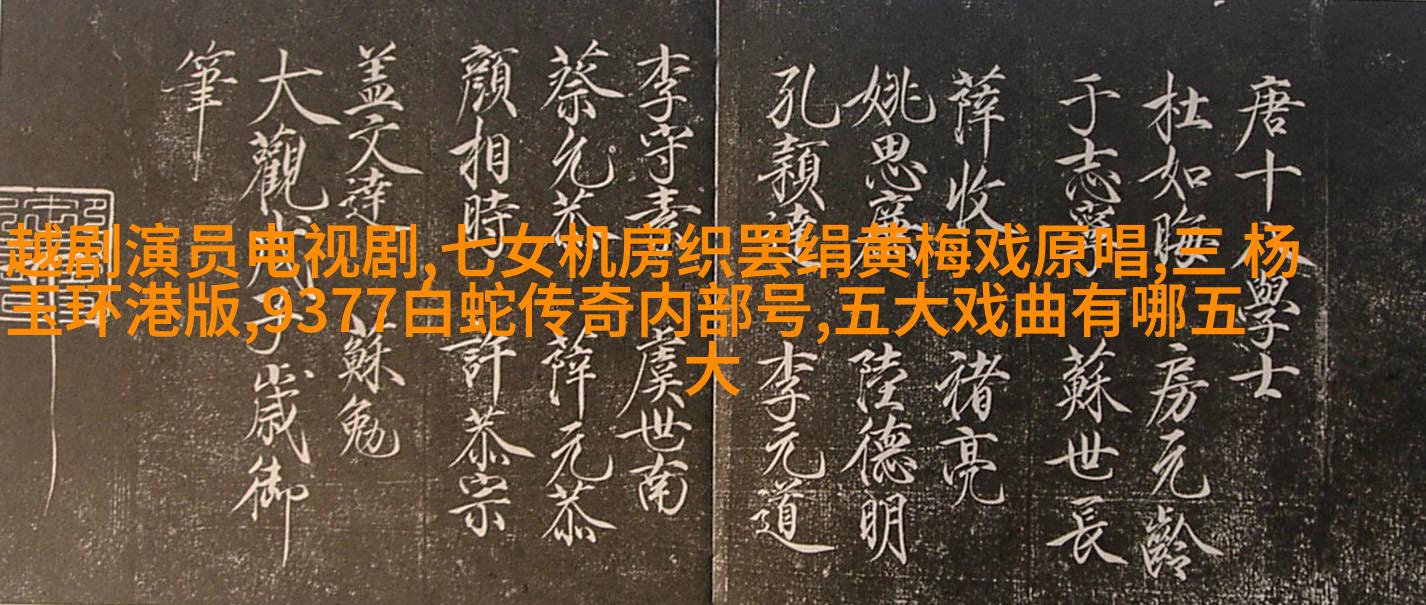 越剧演员电视剧,七女机房织罢绢黄梅戏原唱,三 杨
玉环港版,9377白蛇传奇内部号,五大戏曲有哪五
大
唐十學士
杜如晦 房元齡
于志寧 蘇世長
薛收 褚亮
姚思廉 陸德明
孔穎達 李元道
李守素 虞世南
蔡允恭 薛元恭
顏相時 許恭宗
盖文達 蘓勉
大觀戊子歲御
筆